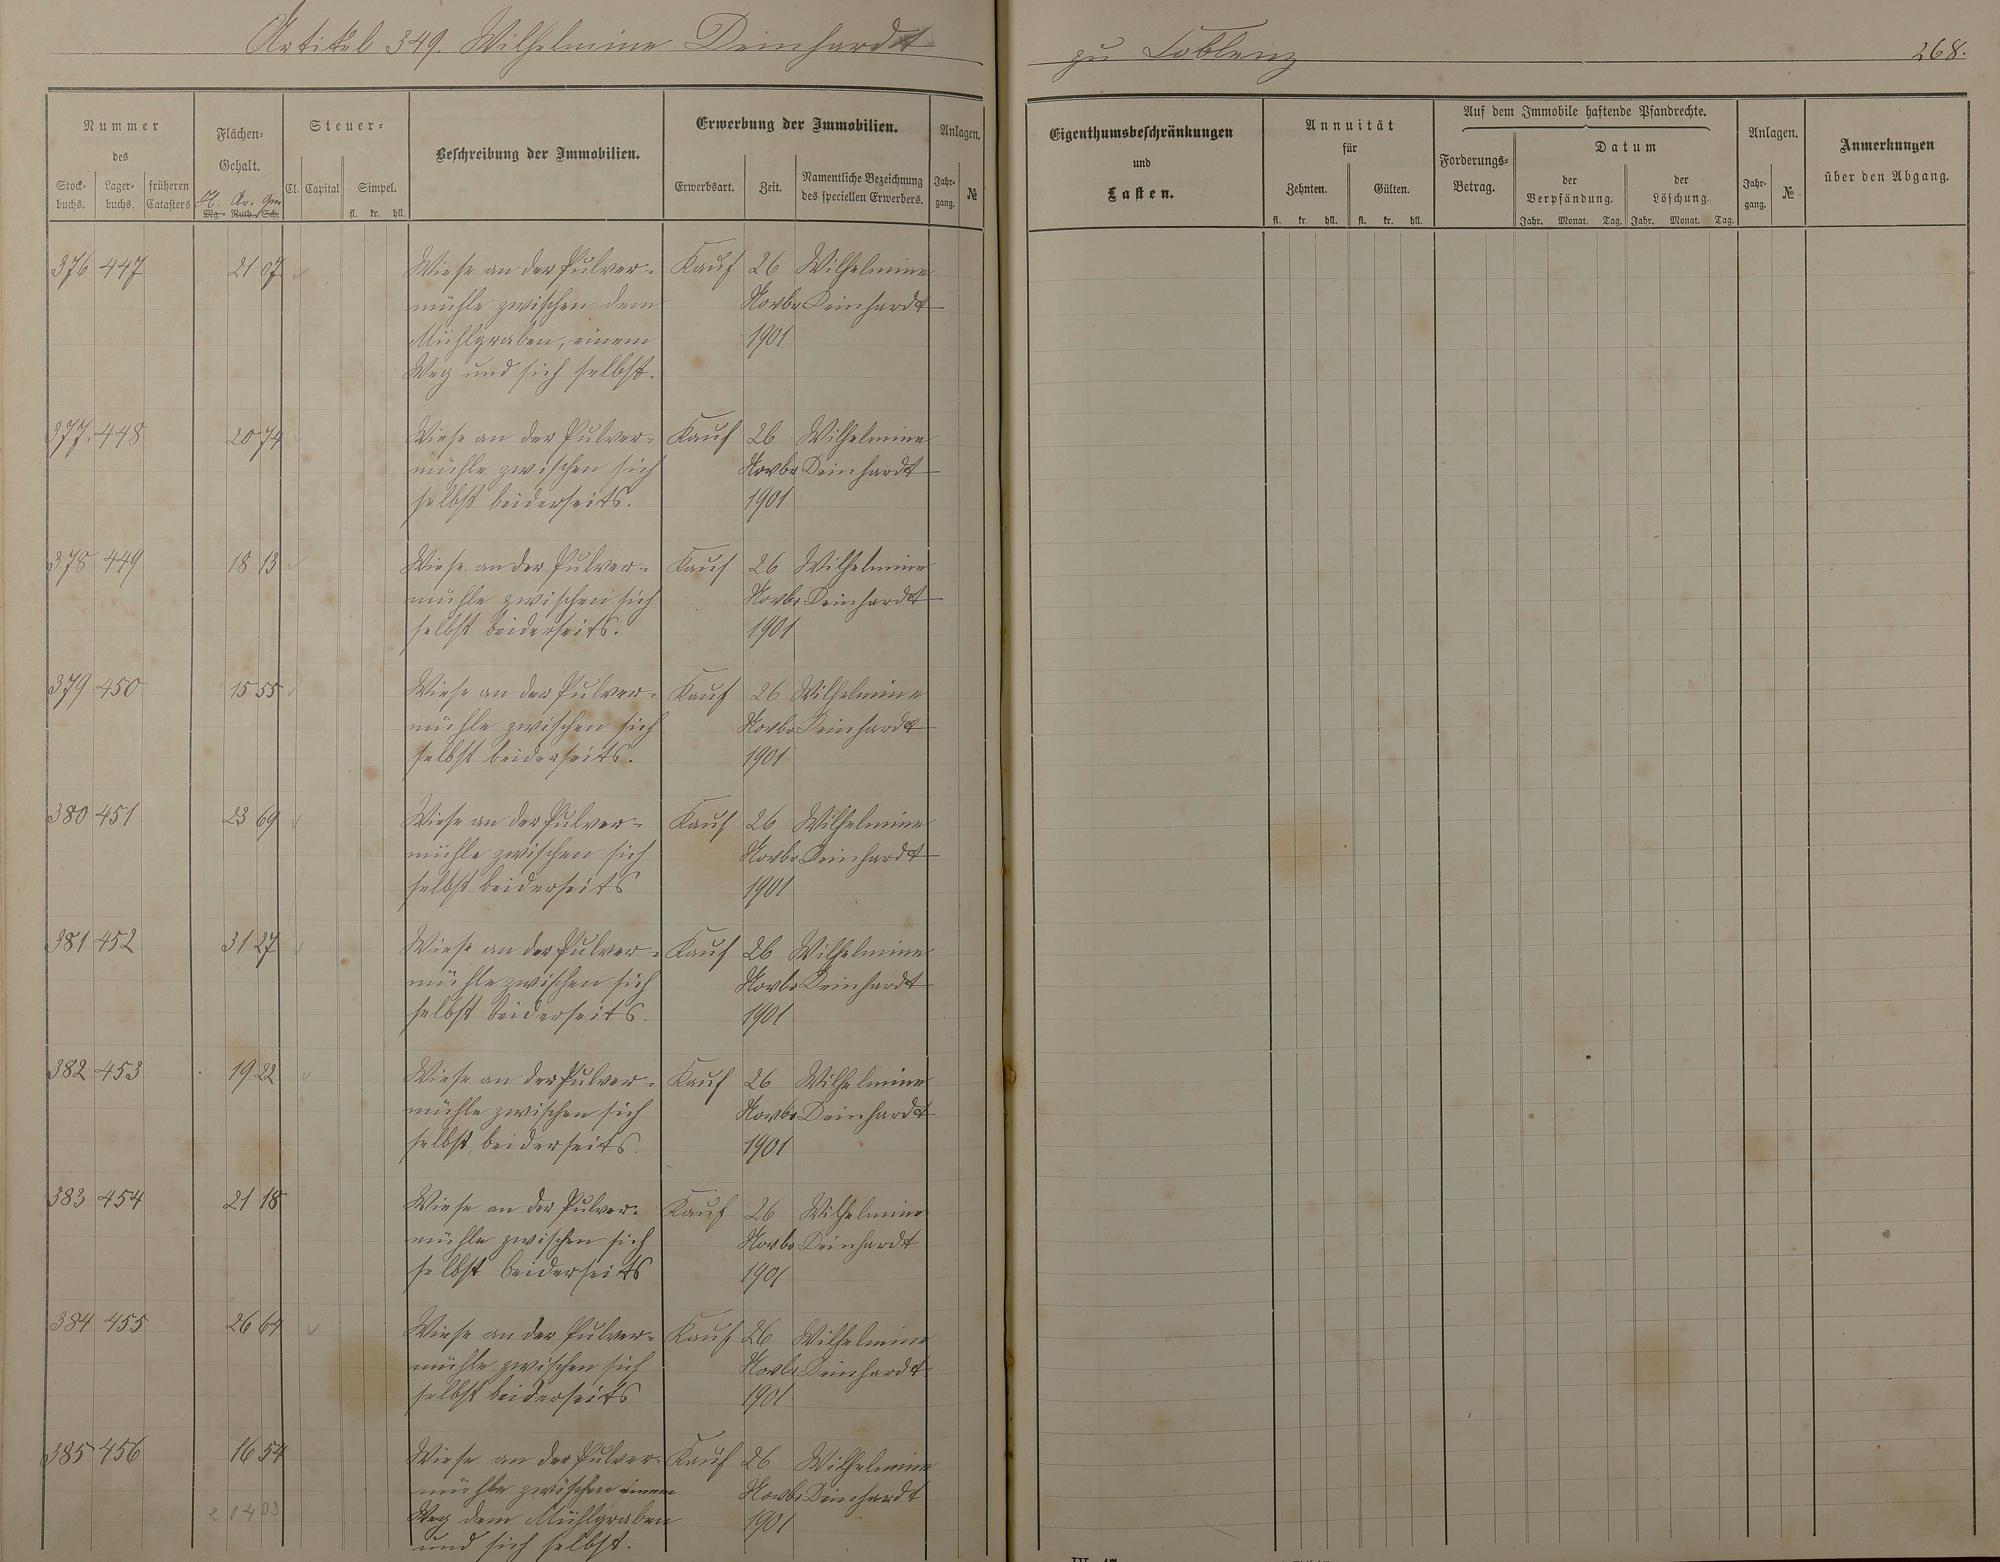 Artikel 349. Wilhelmine Deinhardt zu Coblenz
268.
Nummer
des
Stock-
buchs.
Lager-
buchs.
früheren
Catasters
Flächen-
Gehalt.
H. Ar. Qm
Mg. Ruth. Sch.
Steuer-
Cl. Capital Simpel.
fl. kr. hll.
Beschreibung der Immobilien.
Erwerbung der Immobilien.
Erwerbsart. Zeit.
Namentliche Bezeichnung
des speciellen Erwerbers.
Anlagen.
Jahr-
gang.
№
Eigenthumsbeschränkungen
und
Lasten.
Annuität
für
Zehnten. Gülten.
fl. kr. hll. fl. kr. hll.
Auf dem Immobile haftende Pfandrechte.
Forderungs-
Betrag.
Datum
der
Verpfändung.
der
Löschung.
Jahr. Monat. Tag. Jahr. Monat. Tag.
Anlagen.
Jahr-
gang.
№
Anmerkungen
über den Abgang.
376 447 21 07 Wiese an der Pulver- Kauf 26 Wilhelmine
mühle zwischen dem Novbr Deinhardt
Mühlgraben, einem 1901
Weg und sich selbst.
377. 448 20 74 Wiese an der Pulver- Kauf 26 Wilhelmine
mühle zwischen sich Novbr Deinhardt
selbst beiderseits. 1901
378 449 18 13 Wiese an der Pulver- Kauf 26 Wilhelmine
mühle zwischen sich Novbr Deinhardt
selbst beiderseits. 1901
379 450 15 55 Wiese an der Pulver- Kauf 26 Wilhelmine
mühle zwischen sich Novbr Deinhardt
selbst beiderseits. 1901
380 451 23 69 Wiese an der Pulver- Kauf 26 Wilhelmine
mühle zwischen sich Novbr Deinhardt
selbst beiderseits 1901
381 452 31 27 Wiese an der Pulver- Kauf 26 Wilhelmine
mühle zwischen sich Novbr Deinhardt
selbst beiderseits. 1901
382 453 19 22 Wiese an der Pulver- Kauf 26 Wilhelmine
mühle zwischen sich Novbr Deinhardt
selbst beiderseits. 1901
383 454 21 18 Wiese an der Pulver- Kauf 26 Wilhelmine
mühle zwischen sich Novbr Deinhardt
selbst beiderseits 1901
384 455 26 64 Wiese an der Pulver- Kauf 26 Wilhelmine
mühle zwischen sich Novbr Deinhardt
selbst beiderseits 1901
385 456 16 54 Wiese an der Pulver- Kauf 26 Wilhelmine
mühle zwischen einem Novbr Deinhardt
2 14 03 Weg dem Mühlgraben 1901
und sich selbst.